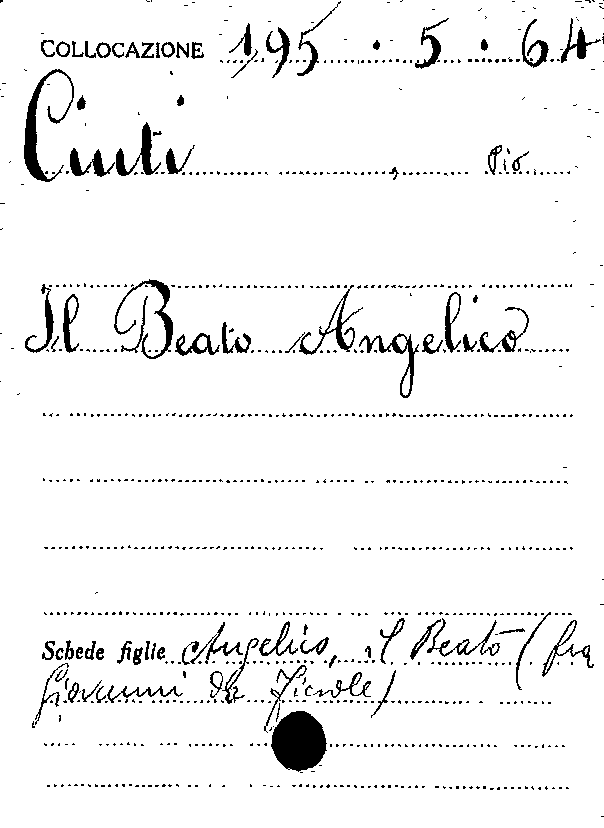 COLLOCAZIONE 195 . 5 . 64
Ciuti , Pio
Il Beato Angelico
Schede figlie Angelico, il Beato (fra
Giovanni da Fiesole)